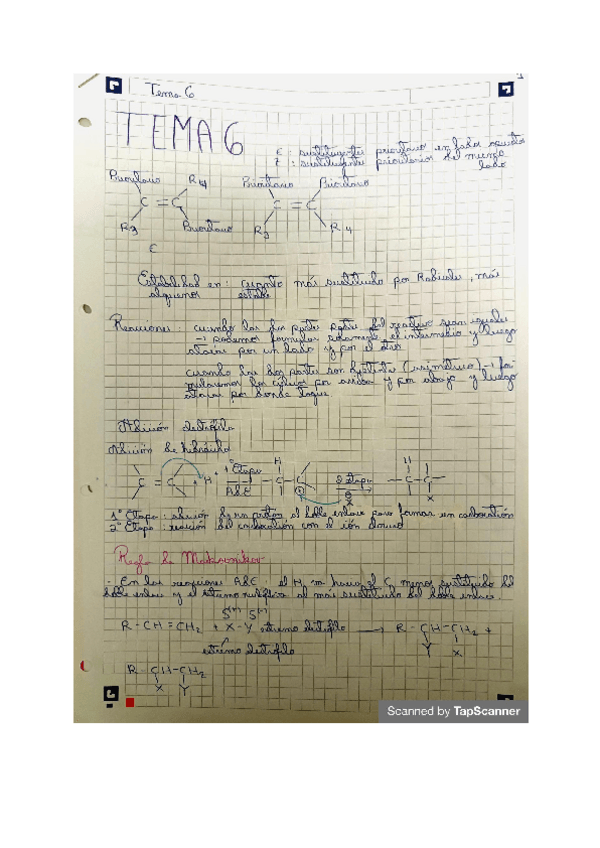 Tema 6
1
TEMA 6
E : sustituyentes prioritarios en lados opuestos
Z : sustituyentes prioritarios del mismo lado
Prioritario R4 Prioritario Prioritario
C = C C = C
R3 Prioritario R3 R4
E
Estabilidad en : cuanto más sustituido por Radicales, más
alquenos estable
Reacciones : cuando las dos partes del reactivo sean iguales
→ podemos formular solamente el intermedio y luego
atacar por un lado y por el otro
cuando las dos partes son distintas (asimétrico) →
formularemos los ciclos por arriba y por abajo y luego
atacar por donde toque
Adición electrófila
Adición de hidrácido
C = C + H+ 1ª Etapa AdE H C - C + 2 Etapa X H - C - C - X
1ª Etapa : adición de un protón al doble enlace para formar un carbocatión
2ª Etapa : reacción del carbocatión con el ión cloruro
Regla de Markovnikov
- En las reacciones AdE el H, va hacia el C menos sustituido del
doble enlace y el extremo nucleófilo al más sustituido del doble enlace.
δ(+) δ(-)
R - CH = CH2 + X - Y extremo electrófilo → R - CH - CH2 +
Y X
extremo electrófilo
R - CH - CH2
X Y
Scanned by TapScanner